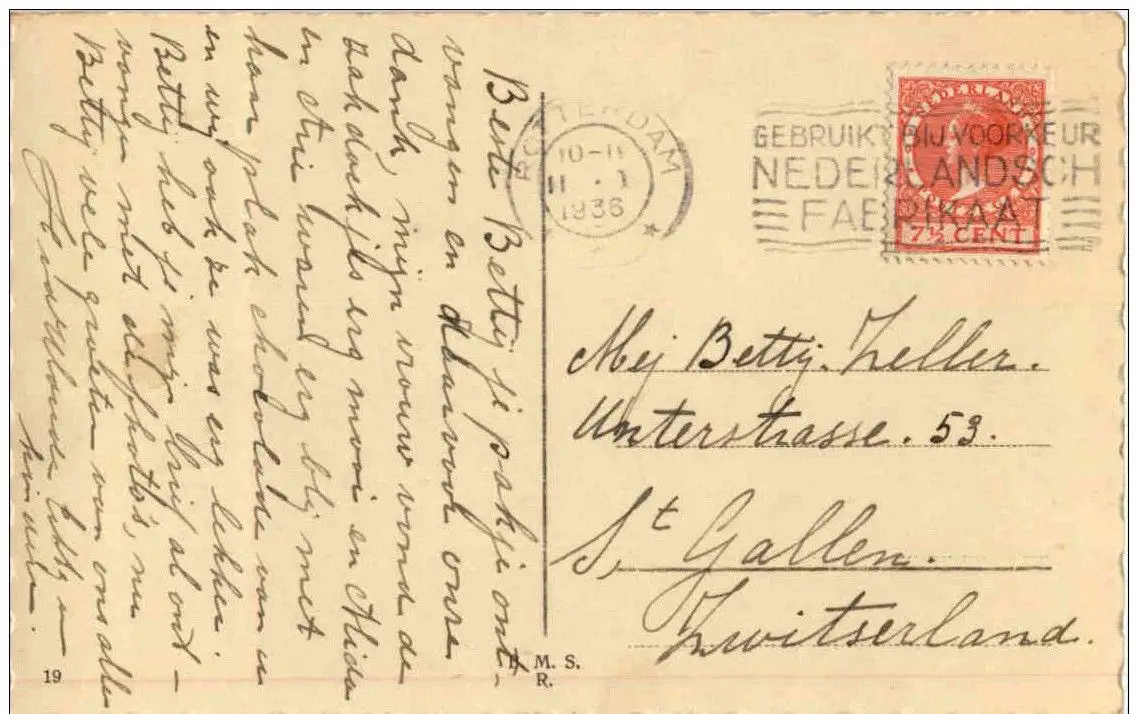 Beste Bettij je pakje ont-
vangen en daarvoor onze
dank, mijn vrouw vond de
zakdoekjes erg mooi en Alida
en Arie waren erg blij met
hun plak chocolade van u
en wij ook ze was erg lekker.
Bettij heb je mijn brief al ont-
vangen met de photo's, nu
Bettij vele groeten van ons alle
Eddy en
kinderen.
ROTTERDAM
10-11
11.1
1936
GEBRUIKT BIJ VOORKEUR
NEDERLANDSCH
FABRIKAAT
NEDERLAND
7½ CENT
Mej Bettij. Zeller.
Unterstrasse. 53.
St Gallen.
Zwitserland.
19
M. S.
R.